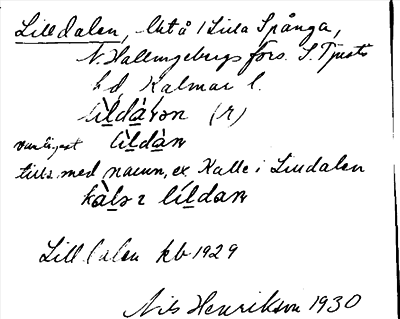 Lilldalen, lht å Lilla Spånga,
N. Hallingebergs förs. S. Tjusts
hd, Kalmar l.
lìldàlən (r)
vanligast lìldàn
tills. med namn, ex. Kalle i Lindalen
kàlə i líldan
Lilldalen kb 1929
Nils Henrikson 1930